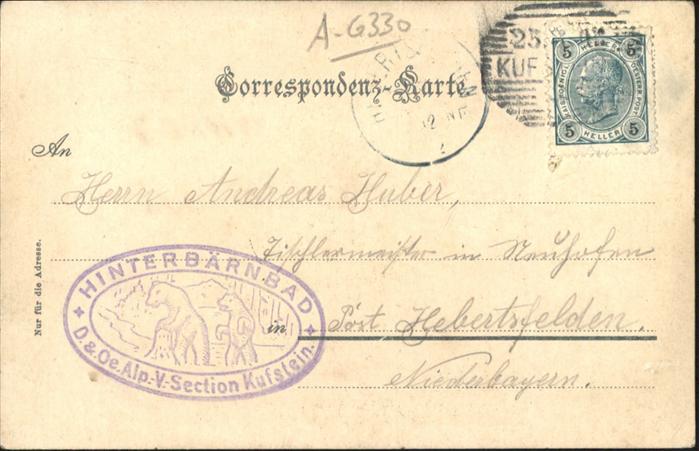 A-G330
25.
KUF
Correspondenz-Karte
5 HELLER 5
5 HELLER 5
An
Herrn Andreas Huber,
Tischlermeister in Neuhofen
in Post Hebertsfelden.
Niederbayern.
Nur für die Adresse.
HINTERBÄRNBAD
D.&Oe.Alp.-V.-Section Kufstein.